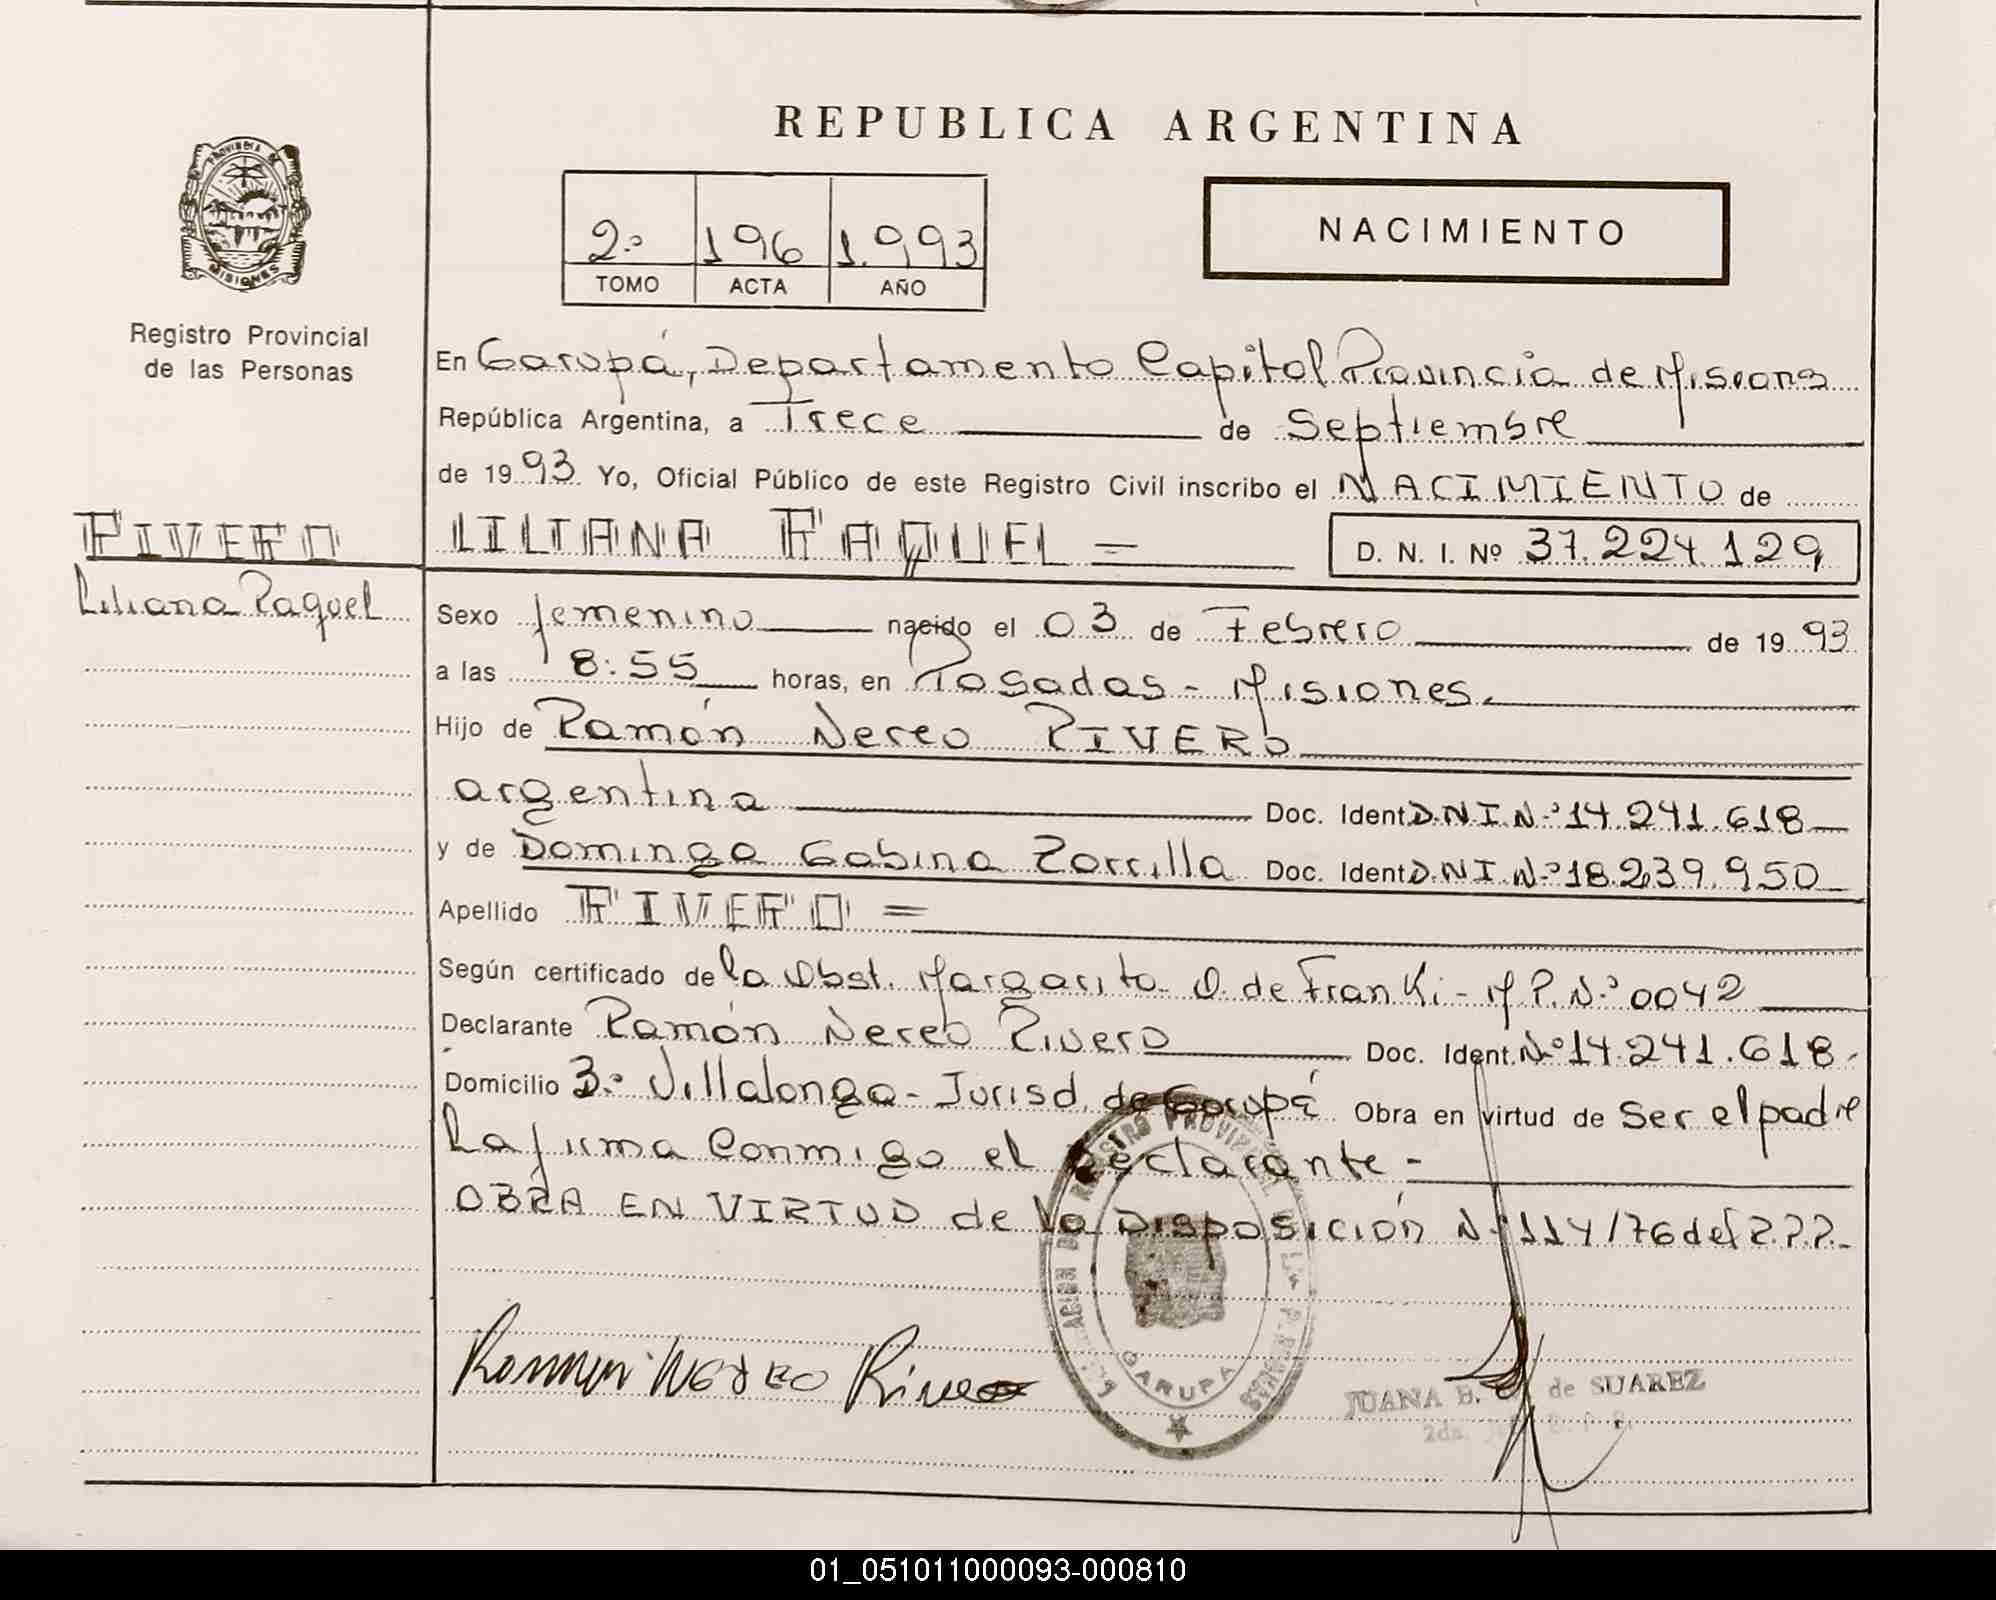 REPUBLICA ARGENTINA
PROVINCIA DE MISIONES
2º 196 1.993
TOMO ACTA AÑO
NACIMIENTO
Registro Provincial
de las Personas
En Garupá, Departamento Capital Provincia de Misiones
República Argentina, a Trece de Septiembre
de 1993 Yo, Oficial Público de este Registro Civil inscribo el NACIMIENTO de
RIVERO
Liliana Raquel
LILIANA RAQUEL =
D. N. I. Nº 37.224.129
Sexo femenino nacido el 03 de Febrero de 1993
a las 8:55 horas, en Posadas - Misiones.
Hijo de Ramón Nereo RIVERO
argentina Doc. Ident. D.N.I.Nº 14.241.618
y de Dominga Gabina Zorrilla Doc. Ident. D.N.I.Nº 18.239.950
Apellido RIVERO =
Según certificado de la Obst. Margarita O. de Franki - M.P.Nº 0042
Declarante Ramón Nereo Rivero Doc. Ident. Nº 14.241.618.
Domicilio Bº Villalonga - Jurisd. de Garupá Obra en virtud de Ser el padre
La firma conmigo el declarante -
OBRA EN VIRTUD de la DISPOSICIÓN Nº 114/76 del R.P.P.
Ramon Nereo Rivero
REGISTRO PROVINCIAL DE LAS PERSONAS
GARUPA
JUANA B. de SUAREZ
01_051011000093-000810